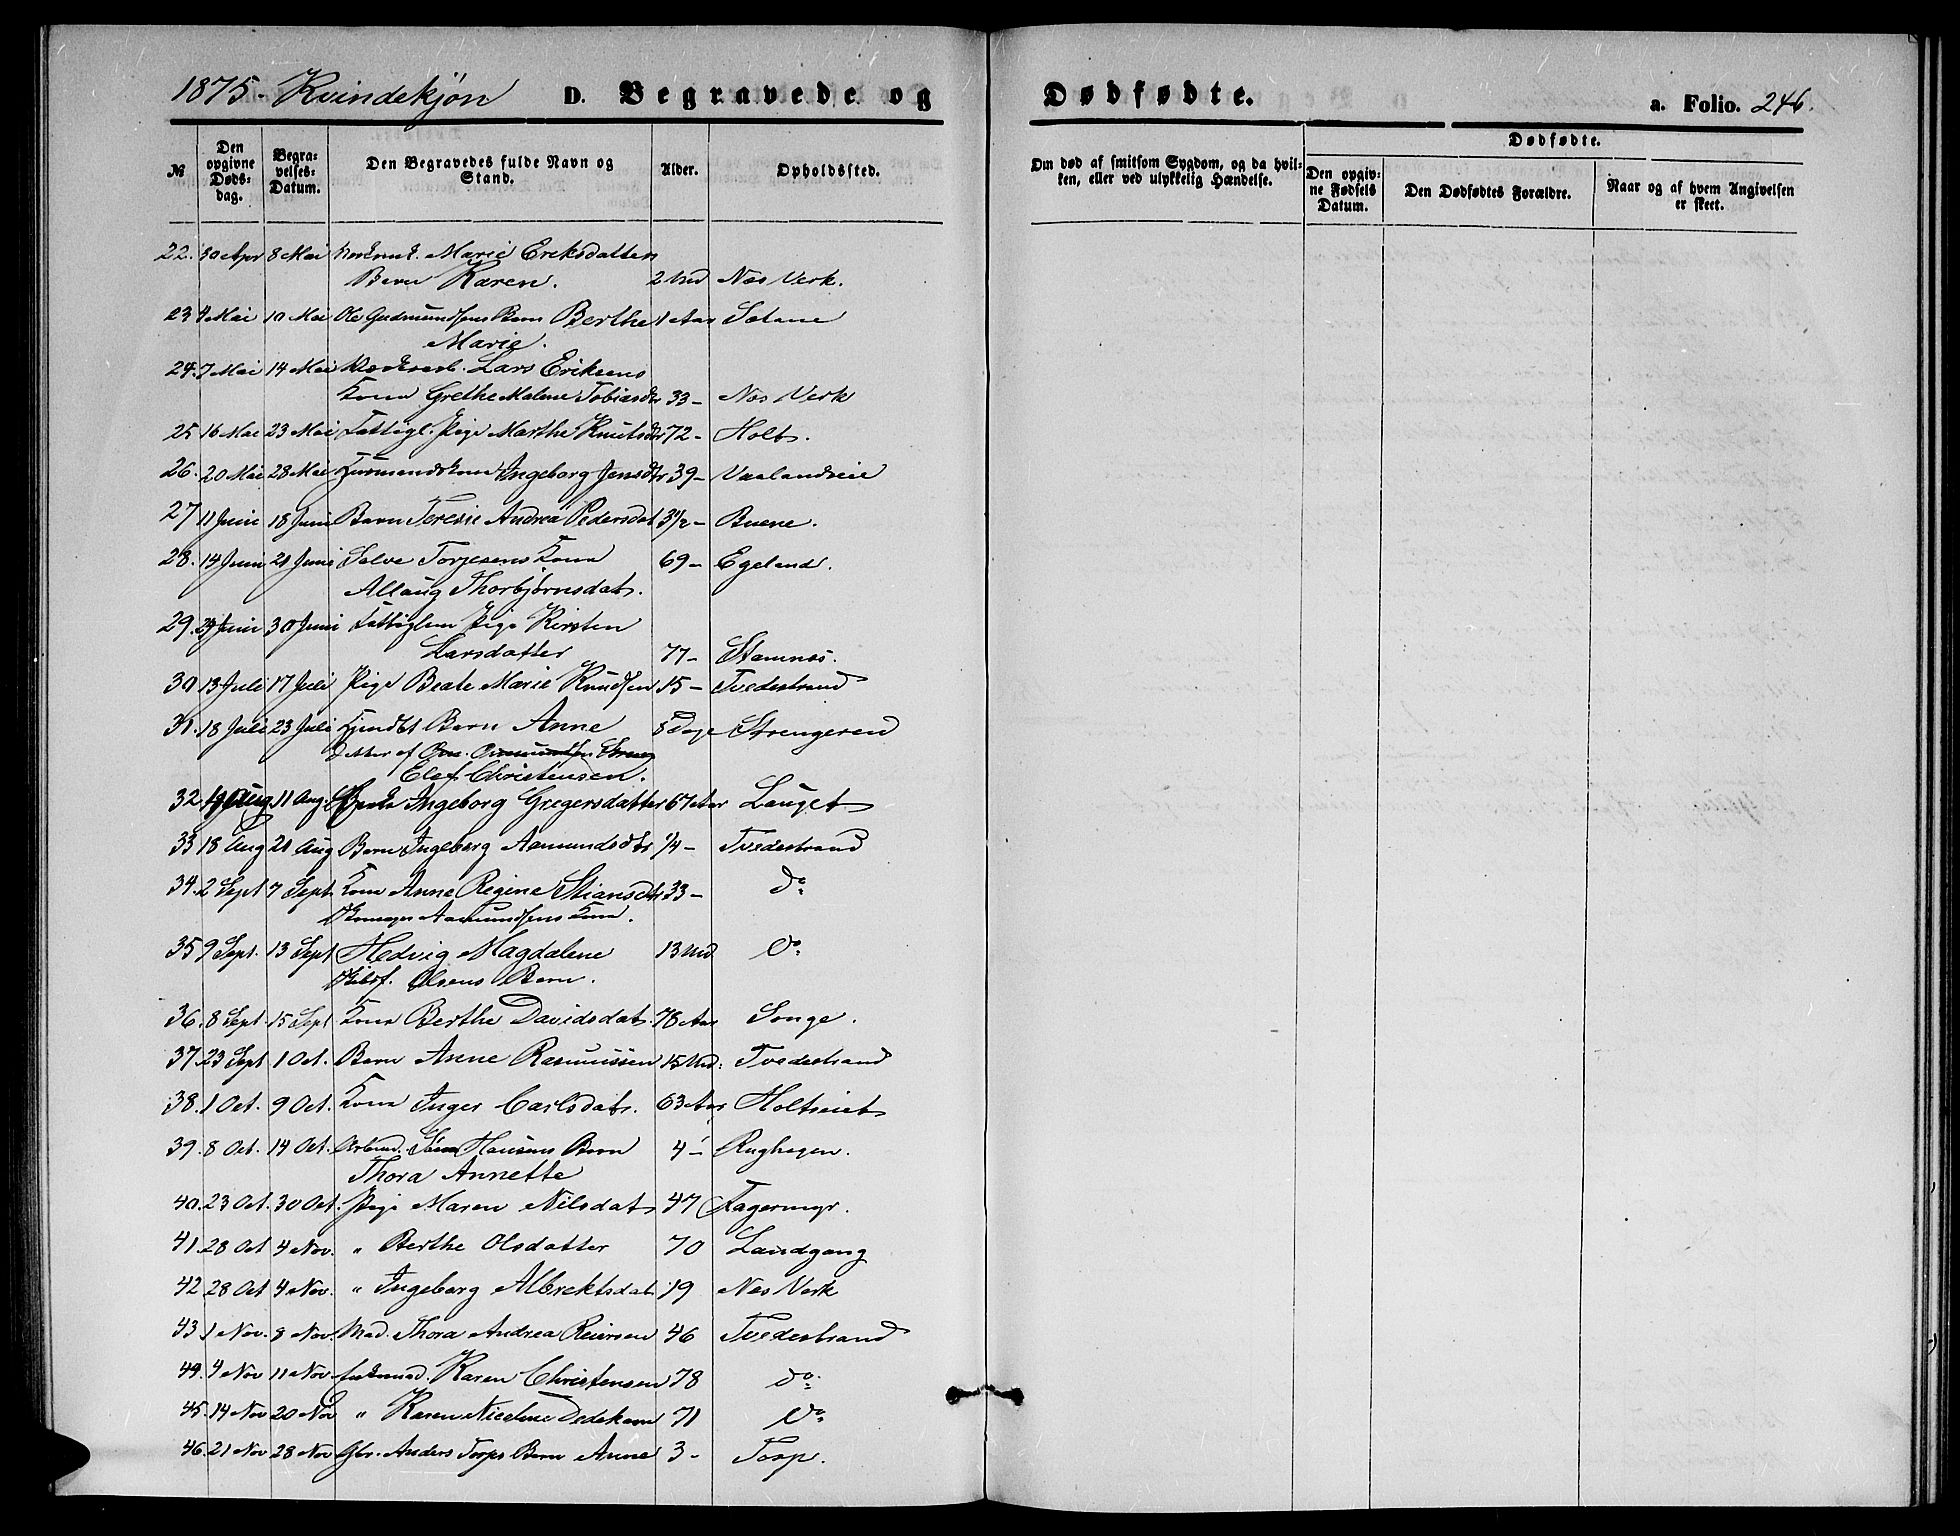 1875. Kvindekjøn D. Begravede og Dødfødte. a. Folio. 246.
№ Den opgivne Døds-dag. Begra-velses-Datum. Den Begravedes fulde Navn og Stand. Alder. Opholdssted. Om død af smitsom Sygdom, og da hvil-ken, eller ved ulykkelig Hændelse. Dødfødte. Den opgiv-ne Fødsels Datum. Den Dødfødtes Forældre. Naar og af hvem Angivelsen er skeet.
22. 30 Apr 8 Mai Marie Eriksdatters
Barn Karen. 2 Md Nes Verk.
23 4 Mai 10 Mai Ole Gudmundsens Barn Berthe 1 Aar Sætane
Marie.
24. 7 Mai 14 Mai Lars Eriksens
Kone Grethe Malene Tobiasdtr 33 - Nes Verk
25 16 Mai 23 Mai Fattigl. Pige Marthe Knutsdtr 72 - Holt.
26. 20 Mai 28 Mai Huusmandskone Ingeborg Jensdtr 39 - Vaalandseie
27 11 Juni 18 Juni Barn Teresie Andrea Pedersdat 3 1/2 - Buene.
28. 14 Juni 21 Juni Salve Torjesens Kone 69 - Egeland.
Allaug Thorbjørnsdat.
29. 24 Juni 30 Juni Fattiglem Pige Kirsten
Larsdatter 77 - Stamnes.
30 13 Juli 17 Juli Pige Beate Marie Knudsen 15 - Tvedestrand
31. 18 Juli 23 Juli Barn Anne 8 Dage Strengereid
Datter af
Elef Christensen.
32 Aug 11 Aug. Ingeborg Gregersdatter 67 Aar Lauget
33 18 Aug 21 Aug Barn Ingeborg Aamundsdtr 1/4 - Tvedestrand
34. 2 Sept 7 Sept Kone Anne Regine Stiansdtr 33 - do
Aamundsens Kone.
35 9 Sept. 13 Sept Hedvig Magdalene 13 Md do
Olsens Barn.
36. 8 Sept. 15 Sept Kone Berthe Davidsdat. 78 Aar Songe.
37. 23 Sept 1 Oct. Barn Anne Rasmussen 15 Md: Tvedestrand
38. 1 Oct. 9 Oct. Kone Inger Carlsdat. 63 Aar Holtseiet
39. 8 Oct. 14 Oct. Arbmd. Hansens Barn 4 - Rughagen.
Thora Annette
40. 23 Oct. 30 Oct. Pige Maren Nilsdat 47 Fagermyr.
41. 28 Oct 4 Nov. " Berthe Olsdatter 70 Landgang
42 28 Oct 4 Nov. " Ingeborg Albrektsdat 19 Nes Verk
43 1 Nov. 8 Nov. Mad. Thora Andrea Reiersen 46 Tvedestrand
44. 4 Nov 11 Nov Enkemad. Karen Christensen 78 do
45. 14 Nov 20 Nov " Karen Nicoline Dedekam 71 do
46. 21 Nov 28 Nov Gbr. Anders Torps Barn Anne 3 - Torp.